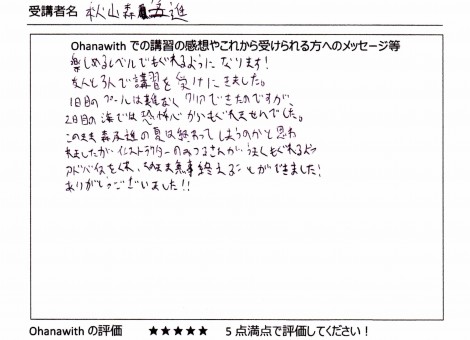 受講者名 秋山森五進
Ohanawith での講習の感想やこれから受けられる方へのメッセージ等
楽しめるレベルでもぐれるようになります！
友人と3人で講習を受けにきました。
1日目のプールは難なくクリアできたのですが、
2日目の海では恐怖心からもぐれませんでした。
このまま森五進の夏は終わってしまうのかと思わ
れましたが、インストラクターのみつるさんが、うまくもぐれるよう
アドバイスをくれ、無事終えることができました！
ありがとうございました！！
Ohanawith の評価 ★★★★★ 5 点満点で評価してください！